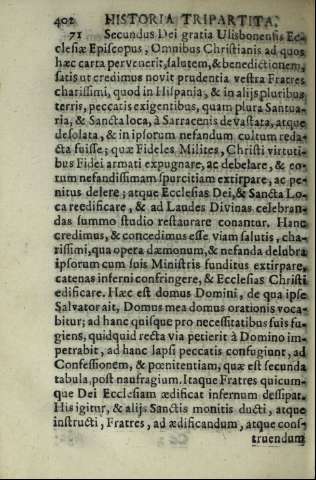 402 HISTORIA TRIPARTITA.
71 Secundus Dei gratia Ulisbonensis Ec-
clesiæ Episcopus, Omnibus Christianis ad quos
hæc carta pervenerit, salutem, & benedictionem,
satis ut credimus novit prudentia vestra Fratres
charissimi, quod in Hispania, & in alijs pluribus
terris, peccatis exigentibus, quam plura Santua-
ria, & Sancta loca, à Sarracenis devastata, atque
desolata, & in ipsorum nefandum cultum reda-
cta fuisse; quæ Fideles Milites, Christi virtuti-
bus Fidei armati expugnare, ac debelare, & eo-
rum nefandissimam spurcitiam extirpare, ac pe-
nitus delere; atque Ecclesias Dei, & Sancta Lo-
ca reedificare, & ad Laudes Divinas celebran-
das summo studio restaurare conantur. Hanc
credimus, & concedimus esse viam salutis, cha-
rissimi, qua opera dæmonum, & nefanda delubra
ipsorum cum suis Ministris funditus extirpare,
catenas inferni confringere, & Ecclesias Christi
edificare. Hæc est domus Domini, de qua ipse
Salvator ait, Domus mea domus orationis voca-
bitur; ad hanc quisque pro necessitatibus suis fu-
giens, quidquid recta via petierit à Domino im-
petrabit, ad hanc lapsi peccatis confugiunt, ad
Confessionem, & pœnitentiam, quæ est secunda
tabula, post naufragium. Itaque Fratres quicum-
que Dei Ecclesiam ædificat infernum dissipat.
His igitur, & alijs Sanctis monitis ducti, atque
instructi, Fratres, ad ædificandum, atque cons-
truendum